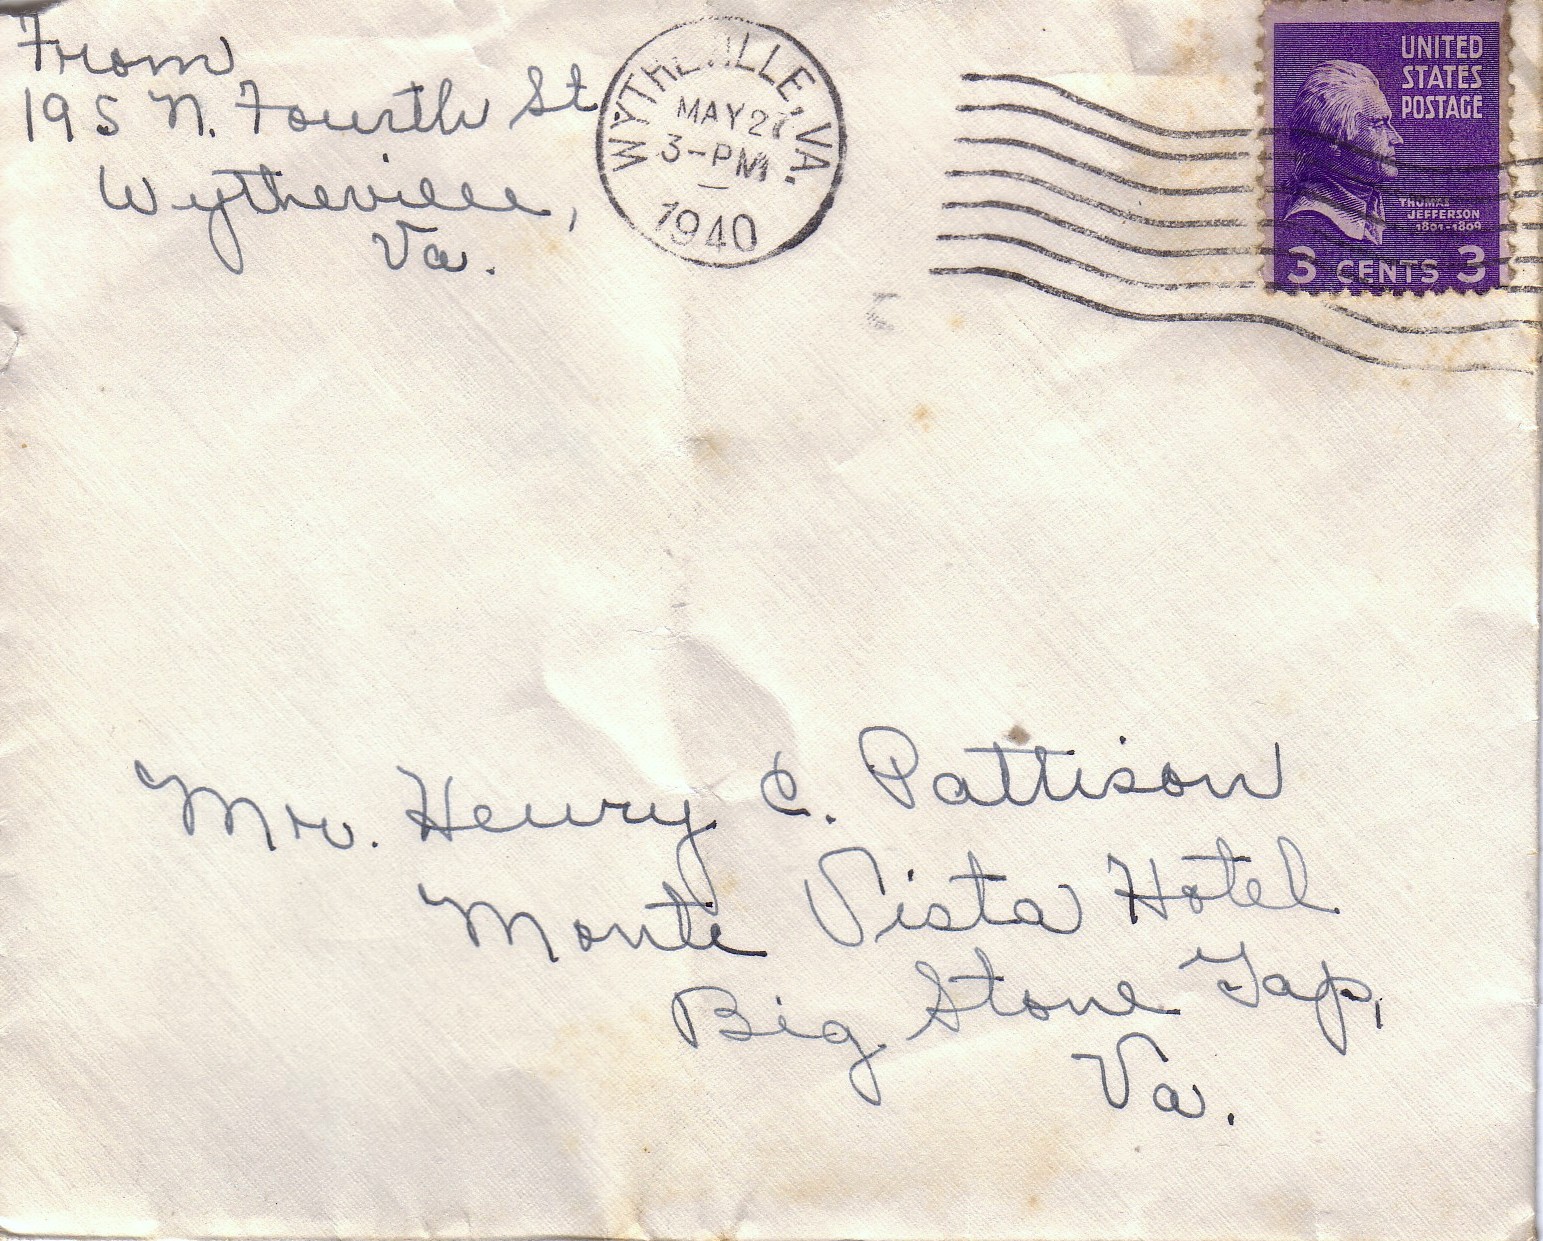 From
195 N. Fourth St
Wytheville,
Va.
WYTHEVILLE, VA.
MAY 27
3-PM
1940
UNITED
STATES
POSTAGE
THOMAS
JEFFERSON
1801-1809
3 CENTS 3
Mr. Henry C. Pattison
Monte Vista Hotel
Big Stone Gap,
Va.